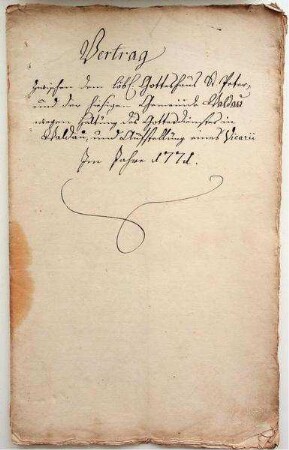 Vertrag
zwischen dem löbl. Gotteshaus St. Peter,
und der hiesigen Gemeinde Waldau
wegen Haltung des Gottesdienstes in
Waldau, und Aufstellung eines Vicarii
Im Jahre 1771.